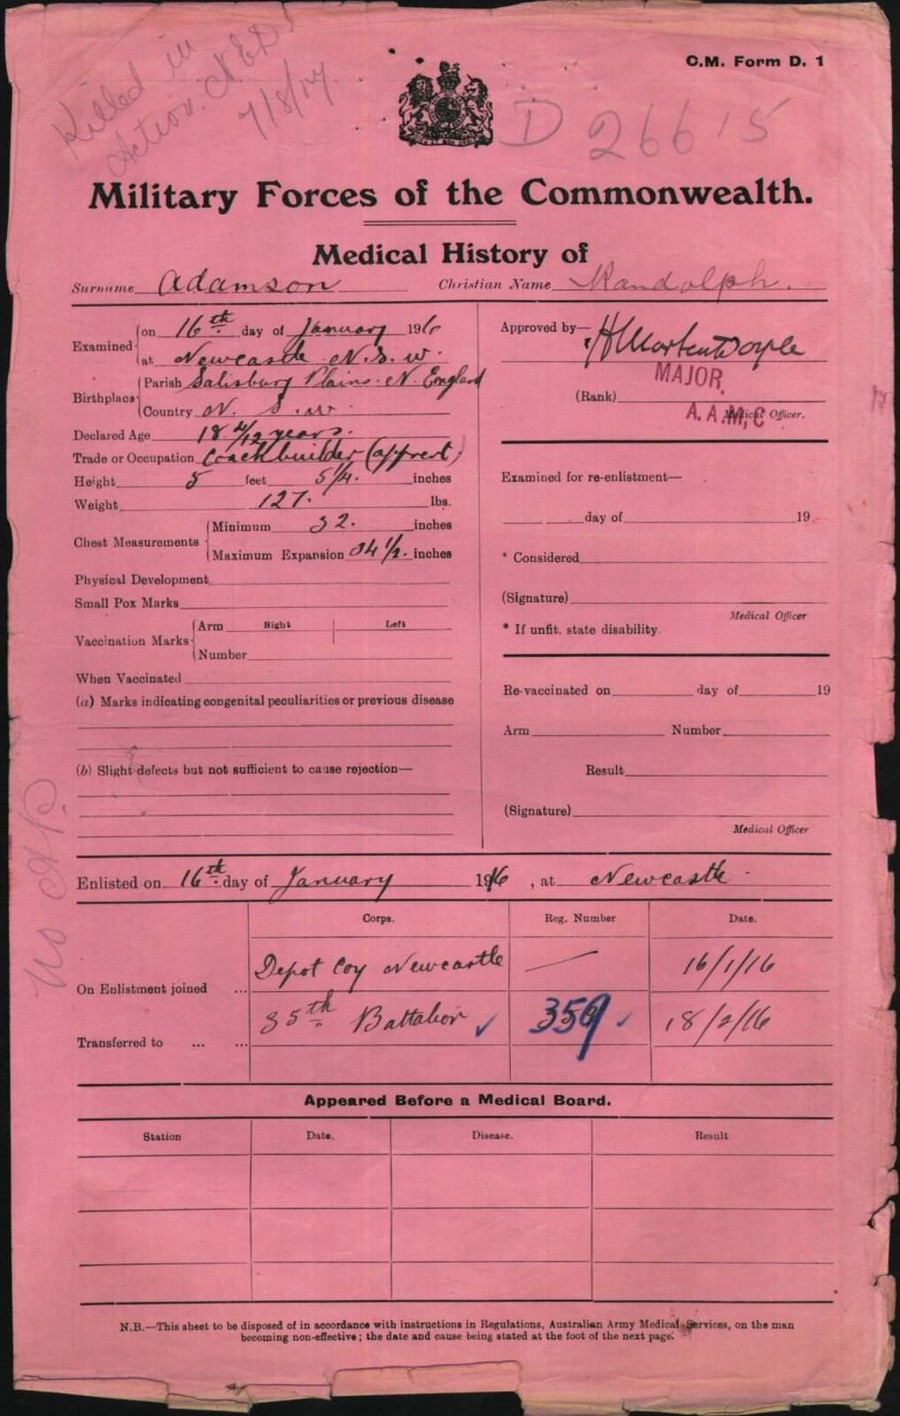 Killed in
Action. N.E.D.
7/8/17.
C.M. Form D. 1
D 26615
Military Forces of the Commonwealth.
Medical History of
Surname Adamson Christian Name Randolph.
Examined on 16th day of January 1916
at Newcastle N.S.W.
Birthplace Parish Salisbury Plains. N. England
Country N. S. W.
Declared Age 18 4/12 years.
Trade or Occupation Coachbuilder (apprent)
Height 5 feet 5 1/4. inches
Weight 127. lbs.
Chest Measurements Minimum 32. inches
Maximum Expansion 34 1/2. inches
Physical Development
Small Pox Marks
Vaccination Marks Arm Right Left
Number
When Vaccinated
(a) Marks indicating congenital peculiarities or previous disease
(b) Slight defects but not sufficient to cause rejection—
Approved by—
MAJOR,
(Rank)
A.A.M.C
Medical Officer.
Examined for re-enlistment—
day of 19
* Considered
(Signature)
Medical Officer
* If unfit, state disability.
Re-vaccinated on day of 19
Arm Number
Result
(Signature)
Medical Officer
No
Enlisted on 16th day of January 1916, at Newcastle.
Corps. Reg. Number Date.
On Enlistment joined ... Depot Coy Newcastle — 16/1/16
Transferred to ... ... 35th Battalion 359 18/2/16
Appeared Before a Medical Board.
Station Date. Disease. Result
N.B.—This sheet to be disposed of in accordance with instructions in Regulations, Australian Army Medical Services, on the man
becoming non-effective; the date and cause being stated at the foot of the next page.